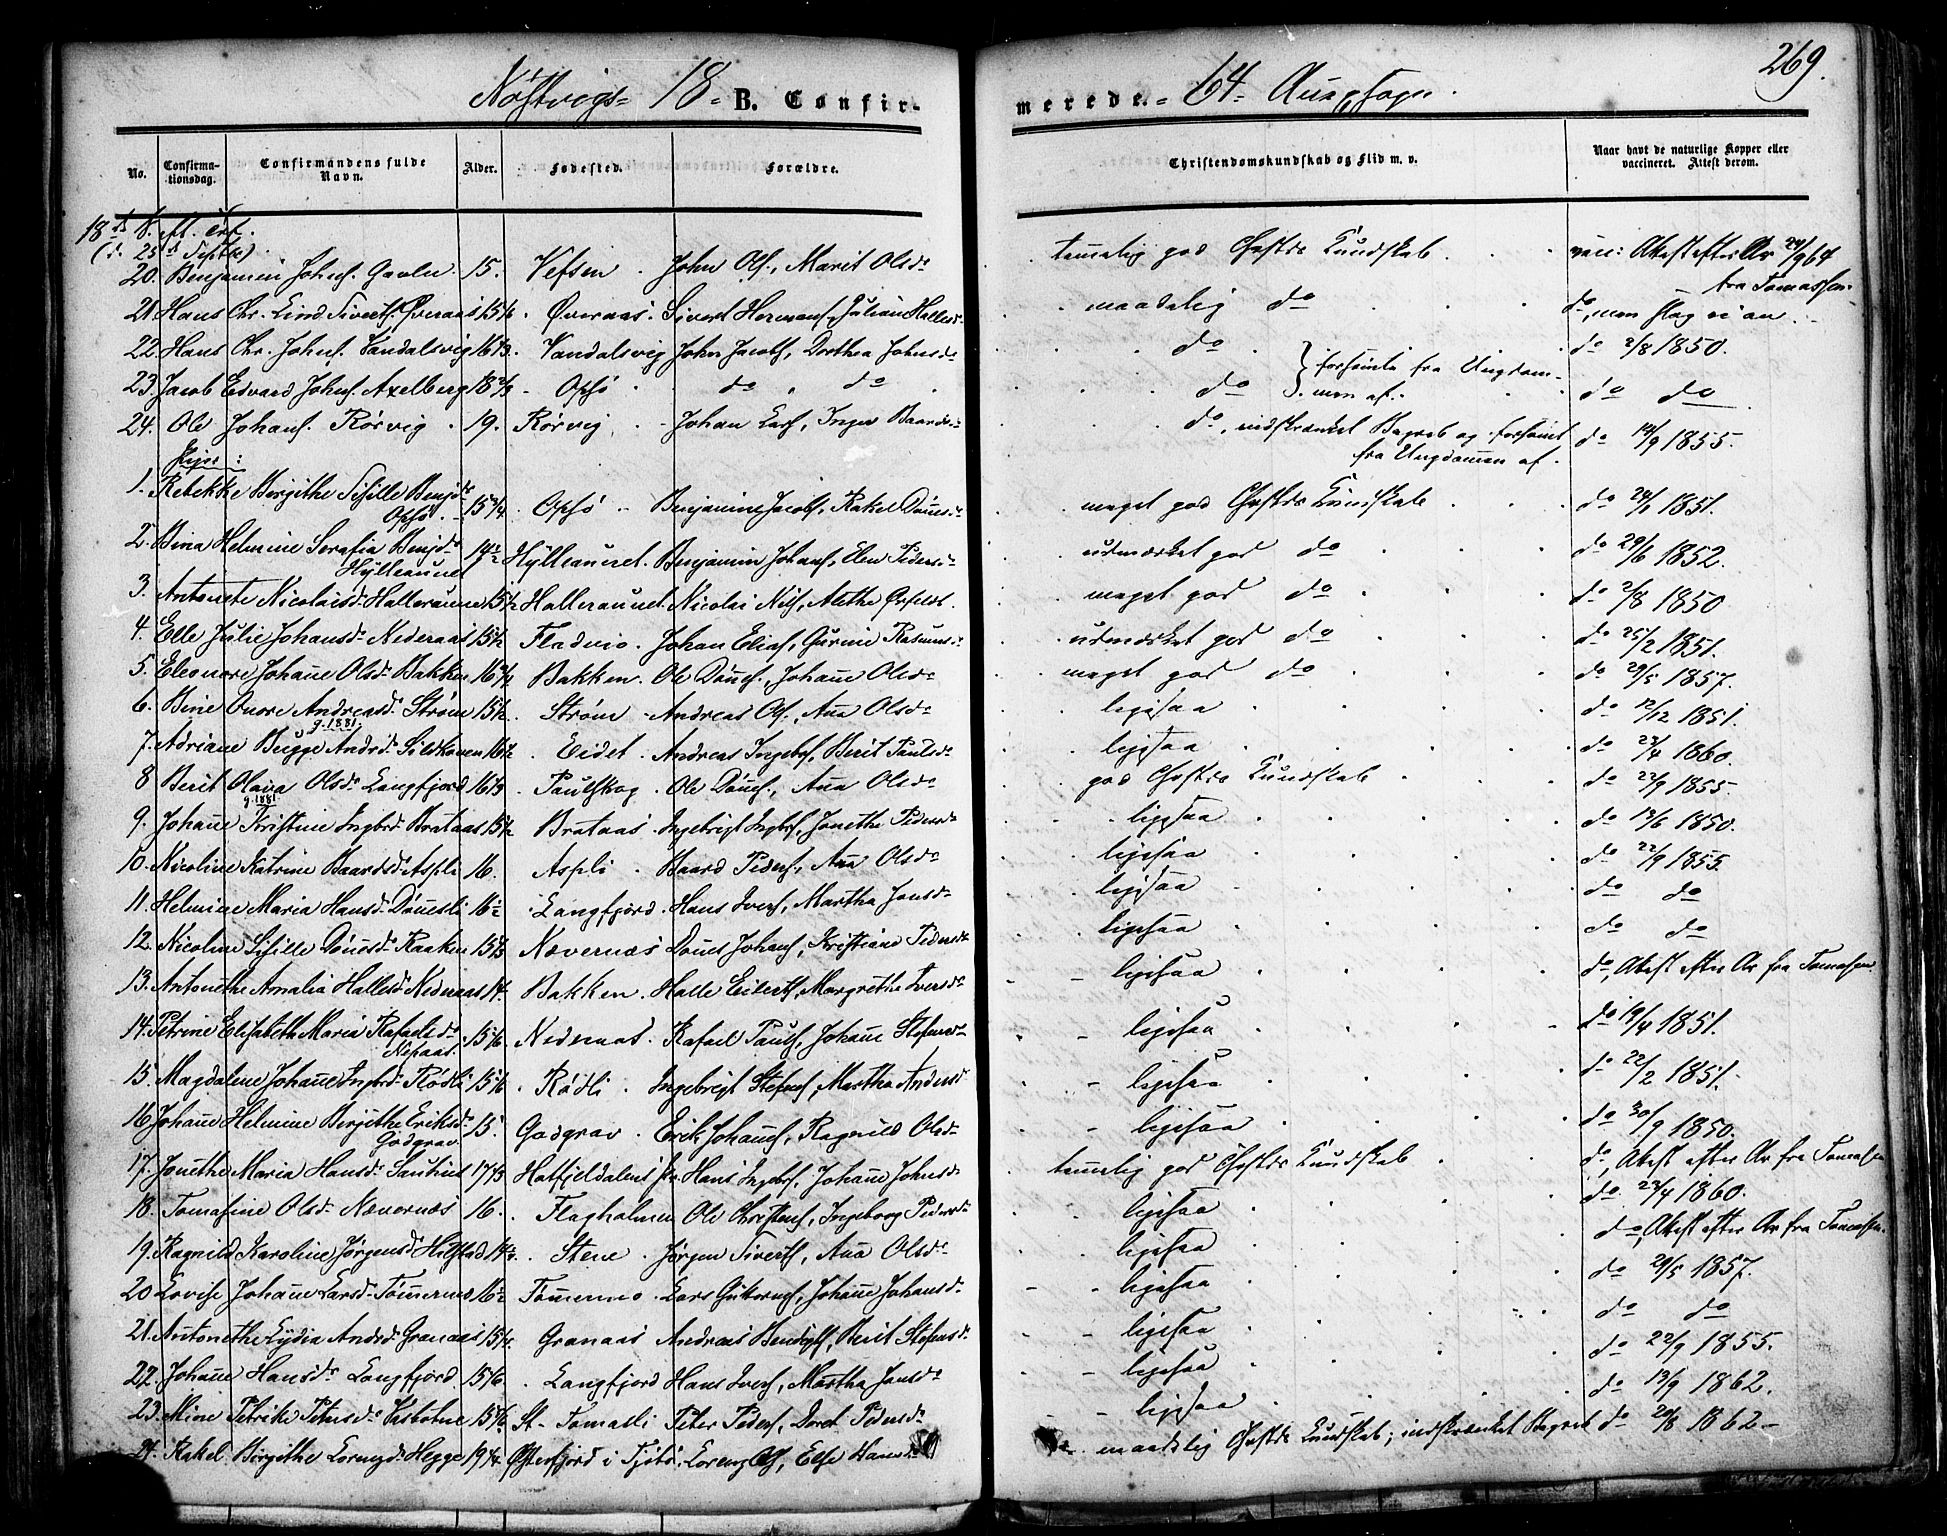 269.
18 B. Confirmerede. 64
No. Confirmationsdag. Confirmandens fulde Navn. Alder. Fødested. Forældre. Christendomskundskab og Flid m. v. Naar havt de naturlige Kopper eller vaccineret. Attest derom.
20. Benjamin Johns. 15. Vefsen. John Ols., Marit Olsdr. temmelig god Chrstds Kundskab vacc: Attest efter
fra Tomassen
21. Hans Chr. Lind Siverts. Øveraas 15 Øveraas. Sivert Hermans., Juliane Hallesdr maadelig do do,
22. Hans Chr. Johns. Vandalsvig 16 Vandalsvig John Jacobs., Dorthea Johnsdr do do 2/8 1850.
23. Jacob Edvard Johns. Axelberg 18 2/3 Opsø do do do forsømte fra Ungdommen af. do do
24. Ole Johans. Rørvig 19. Rørvig Johan Lars., Inger Baardsdr do, indskrænket Begreb og forsømt fra Ungdommen af. do 14/9 1855.
Piger:
1. Rebekke Bergithe Sisille Benjdr Opsø 15 3/4 Opsø Benjamin Jacobs., Rakel Dønnesdr meget god Chrstds Kundskab do 24/1 1851.
2. Bina Helmine Serafia Benjdr Hylleaunet 14 1/2 Hylleaunet. Benjamin Johans., Elen Pedersdr udmærket god do do 29/6 1852.
3. Antonete Nicolaisdr Halleraunet 15 1/2 Halleraunet. Nicolai Nils., Alethe meget god do do 2/8 1850
4. Elle Julie Johansdr Nederaas 15 1/2 Johan Elias., Gurine Rasmusdr udmærket god do do 25/2 1851.
5. Eleonore Johanne Olsdr Bakken 16 3/4 Bakken. Ole Dønnes., Johanne Olsdr meget god do do 29/5 1857.
6. Bine Onore Andreasdr Strøm 15 1/2 Strøm Andreas Ols., Ana Olsdr ligesaa do 12/12 1851.
g. 1881.
7. Adriane Bugge Andrdr Sildhaven 16 1/2 Eidet. Andreas Ingebrs., Berit Paulsdr ligesaa do 23/4 1860.
8 Berit Olava Olsdr Langfjord 16 1/3 Paulskog. Ole Dønnes., Ana Olsdr god Chrstds Kundskab do 22/9 1855.
g. 1881.
9. Johanne Kristine Ingbrdr Brataas 15 1/2 Brataas. Ingebrigt Ingbrs., Jonetha Pedersdr ligesaa do 13/6 1850.
10. Nicoline Katrine Baardsdr Aspli 16. Aspli Baard Peders., Ana Olsdr ligesaa do 22/9 1855.
11. Helmine Maria Hansdr Dønnesli 16 1/2 Langfjord. Hans Ivers., Martha Jonsdr ligesaa do do
12. Nicoline Sisille Dønnesdr Raaken 15 1/3 Nævernæs Dønnes Johans., Kristiane Pedersdr ligesaa do do
13. Antonethe Amalia Hallesdr Nederaas 14. Bakken. Halle Eilerts., Margrethe Iversdr ligesaa do, Attest efter Ar fra Tomassen
14. Petrine Elisabeth Maria Rafaelsdr 15 1/6 Nederaas. Rafael Pauls., Johanne Stefensdr ligesaa do 19/4 1851.
15. Magdalene Johanne Ingbrdr Rødli 15 1/6 Rødli. Ingebrigt Stefens., Martha Andersdr ligesaa do 22/2 1851.
16 Johanne Helmine Bergithe Eriksdr Godgrav 15. Godgrav. Erik Johans., Ragnild Olsdr ligesaa do 30/9 1850.
17. Jonethe Maria Hansdr 17 1/3 Hatfjeldalens Hans Ingebrs., Johanne Johnsdr temmelig god Chrstds Kundskab do, Attest efter Ar fra Tomassen
18. Tomasine Olsdr Nævernæs 16. Flagholmen Ole Christens., Ingeborg Pedersdr ligesaa do 23/4 1860.
19. Ragnild Karoline Jørgensdr Hilstad 14 1/2. Stene Jørgen Siverts., Ana Olsdr ligesaa do, Attest efter Ar fra Tomassen.
20 Lovise Johanne Larsdr 16 1/2 Lars Guttorms., Johanne Johansdr ligesaa do 29/5 1857.
21. Antonethe Lydia Andrdr Granaas 15 1/4. Granaas Andreas Bendigts., Berit Stefensdr ligesaa do do
22. Johanne Hansdr Langfjord 15 1/6. Langfjord Hans Ivers., Martha Jonsdr ligesaa do 22/9 1855.
23. Mine Petrike Petersdr Vasbotne 15 St. Tomasli Peter Peders., Doret Pedersdr ligesaa do 13/9 1862.
24. Rakel Birgithe Lorenzdr Hegge 19 1/4. i Tjøtø. Lorenz Ols., Else Hansdr maadelig Chrstds Kundskab; indskrænket Begreb do 20/8 1862